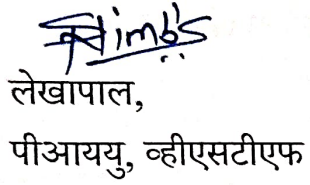 लेखापाल,
पीआययु, व्हीएसटीएफ